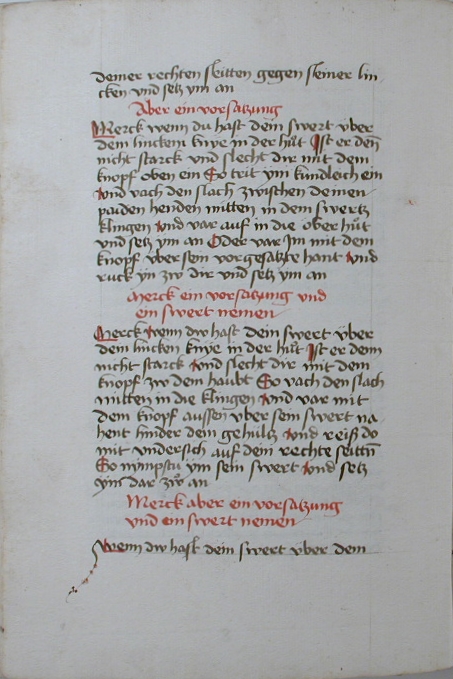 deiner rechten seitten gegen seiner lin
cken vnd setz ym an
Aber ein vorsatzung
Merck wenn du hast dein swert vber
dem lincken knye in der hu̇t Ist er den̄
nicht starck vnd slecht dir mit dem
knopf oben ein So trit ym kundleich ein
vnd vach den slach zwischen deinen
paiden henden mitten in dem swertz
klingen vnd var auf in die ober hu̇t
vnd setz ym an Oder var Im mit dem
knopf vber sein vorgesatzte hant vnd
ruck yn zw dir vnd setz ym an
Merck ein vorsatzung vnd
ein swert nemen
Merck wenn dw hast dein swert vber
dem lincken knye in der hu̇t Ist er denn
nicht starck vnd slecht dir mit dem
knopf zw dem haubt So vach den slach
mitten in die klingen vnd var mit
dem knopf aussen vber sein swert na
hent hinder dem gehültz vnd reiß do
mit vndersich auf dein rechte seittn̄
So nympstu ym sein swert vnd setz
ym dar zw an
Merck aber ein vorsatzung
vnd ein swert nemen
Wenn dw hast dein swert vber dem